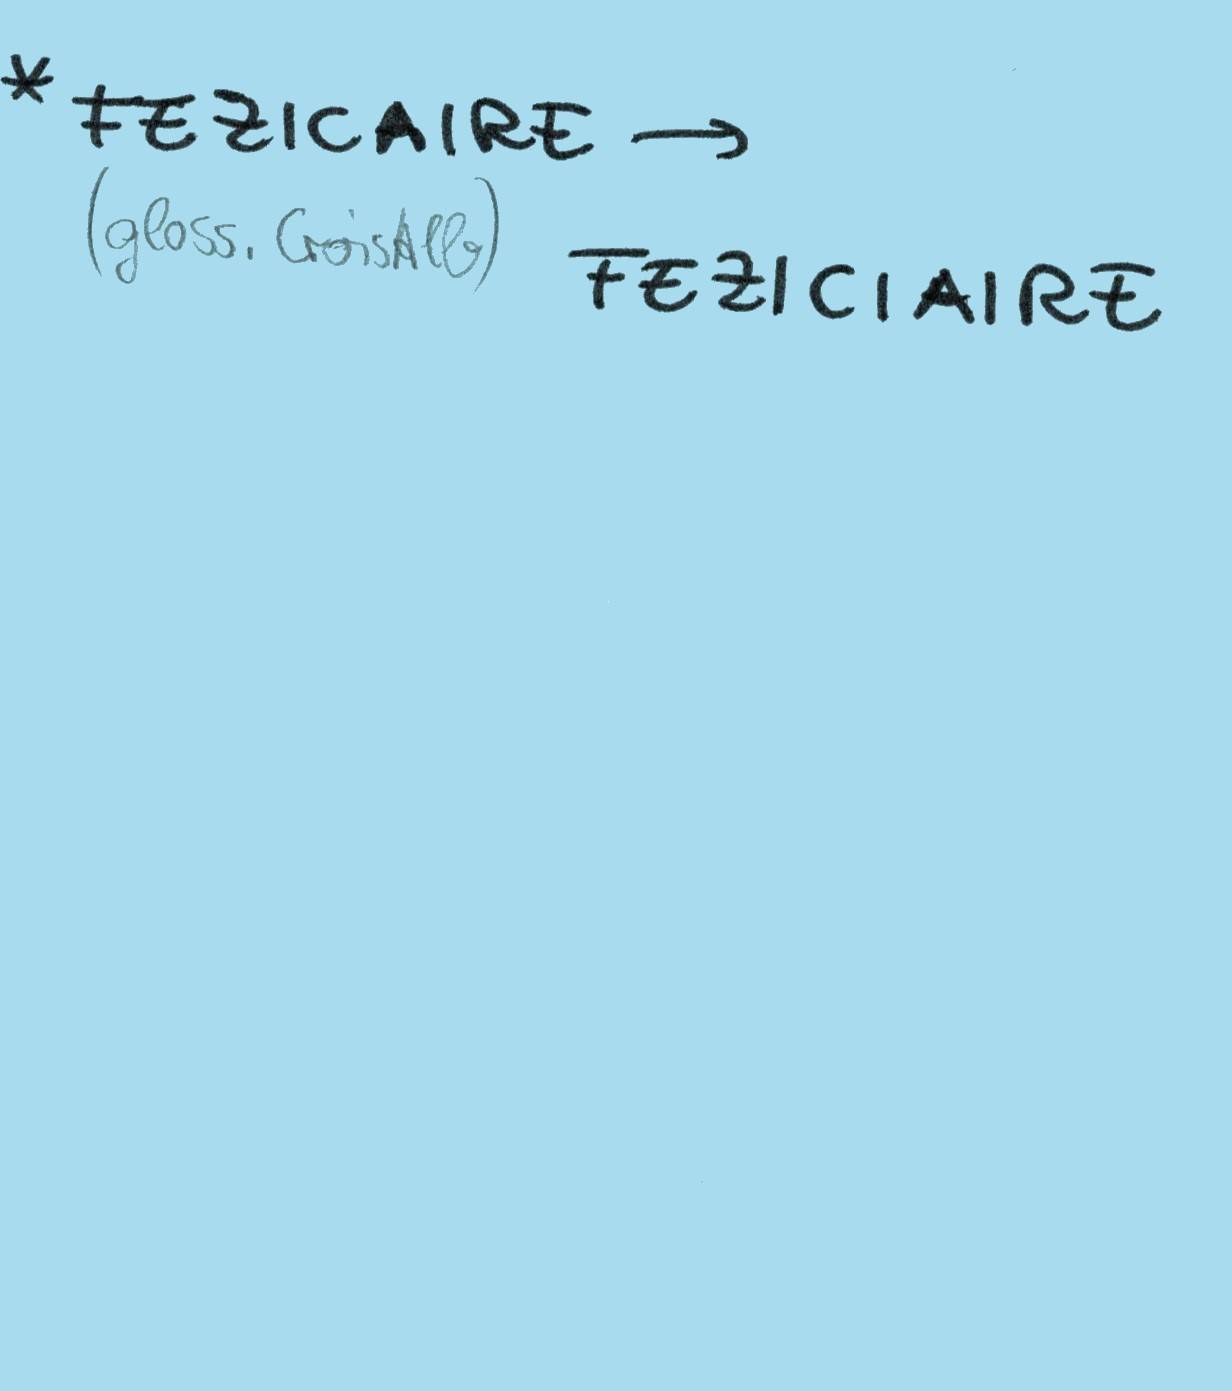 * FEZICAIRE →
(gloss. CroisAlb)
FEZICIAIRE